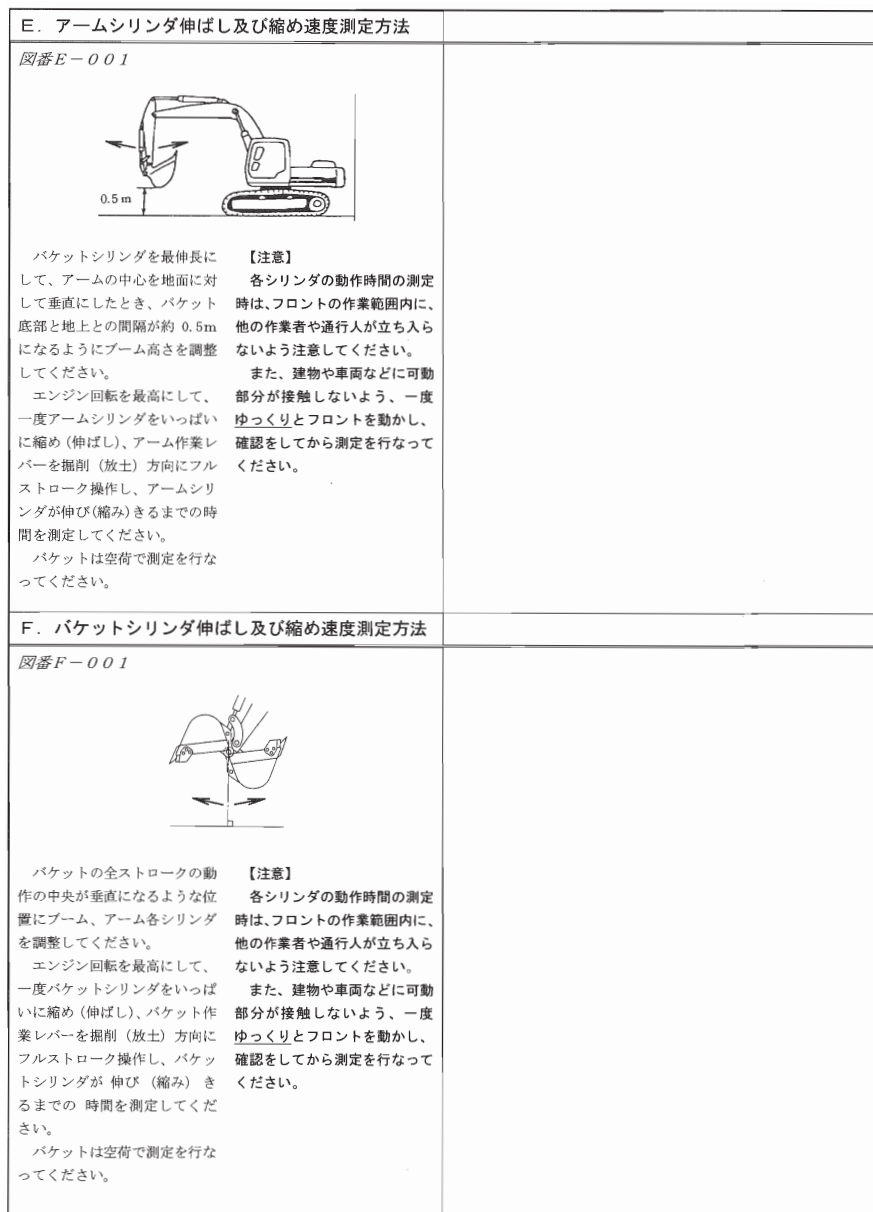 E. アームシリンダ伸ばし及び縮め速度測定方法
図番E-001
0.5m
バケットシリンダを最伸長に
して、アームの中心を地面に対
して垂直にしたとき、バケット
底部と地上との間隔が約 0.5m
になるようにブーム高さを調整
してください。
エンジン回転を最高にして、
一度アームシリンダをいっぱい
に縮め(伸ばし)、アーム作業レ
バーを掘削(放土)方向にフル
ストローク操作し、アームシリ
ンダが伸び(縮み)きるまでの時
間を測定してください。
バケットは空荷で測定を行な
ってください。
【注意】
各シリンダの動作時間の測定
時は、フロントの作業範囲内に、
他の作業者や通行人が立ち入ら
ないよう注意してください。
また、建物や車両などに可動
部分が接触しないよう、一度
ゆっくりとフロントを動かし、
確認をしてから測定を行なって
ください。
F. バケットシリンダ伸ばし及び縮め速度測定方法
図番F-001
バケットの全ストロークの動
作の中央が垂直になるような位
置にブーム、アーム各シリンダ
を調整してください。
エンジン回転を最高にして、
一度バケットシリンダをいっぱ
いに縮め(伸ばし)、バケット作
業レバーを掘削(放土)方向に
フルストローク操作し、バケッ
トシリンダが 伸び (縮み) き
るまでの 時間を測定してくだ
さい。
バケットは空荷で測定を行な
ってください。
【注意】
各シリンダの動作時間の測定
時は、フロントの作業範囲内に、
他の作業者や通行人が立ち入ら
ないよう注意してください。
また、建物や車両などに可動
部分が接触しないよう、一度
ゆっくりとフロントを動かし、
確認をしてから測定を行なって
ください。